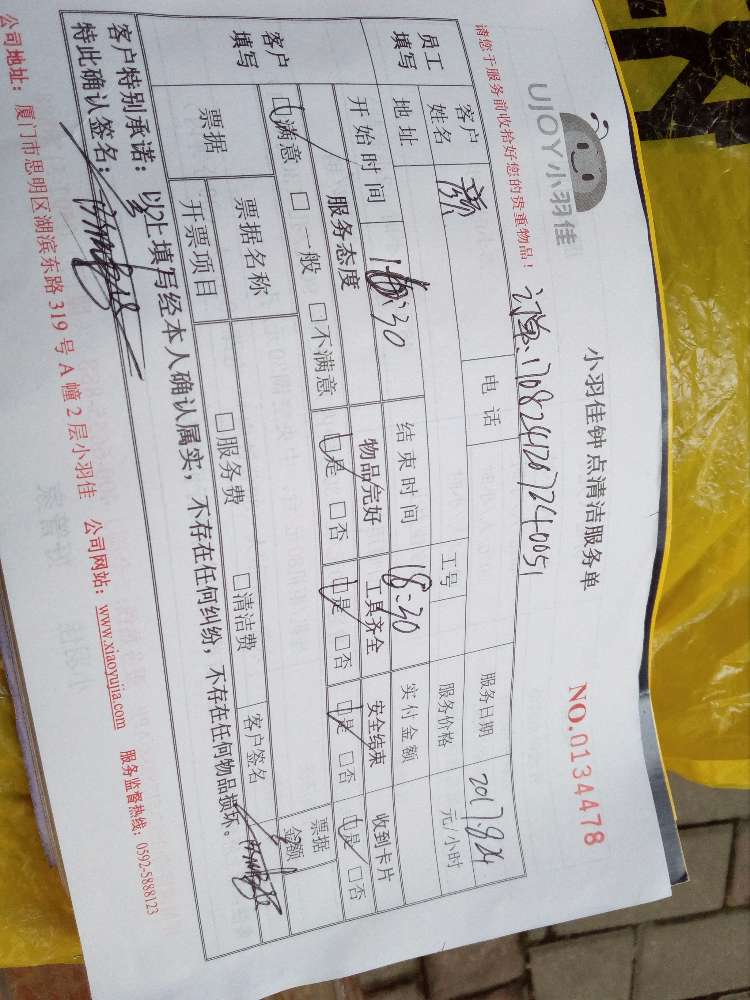 UJOY小羽佳
小羽佳钟点清洁服务单
NO.0134478
请您于服务前收拾好您的贵重物品！
订单:170824267240051
员工填写 客户姓名 颜 电话 服务日期 2017.8.24
地址 工号 服务价格 元/小时
开始时间 16:30 结束时间 18:30 实付金额
客户填写 服务态度 物品完好 工具齐全 安全结束 收到卡片
□满意 □一般 □不满意 □是 □否 □是 □否 □是 □否 □是 □否
票据 票据名称 □服务费 □清洁费 客户签名 票据金额
开票项目
客户特别承诺：以上填写经本人确认属实，不存在任何纠纷，不存在任何物品损坏。
特此确认签名：
公司地址：厦门市思明区湖滨东路 319 号 A 幢 2 层小羽佳 公司网站：www.xiaoyujia.com 服务监督热线：0592-5888123